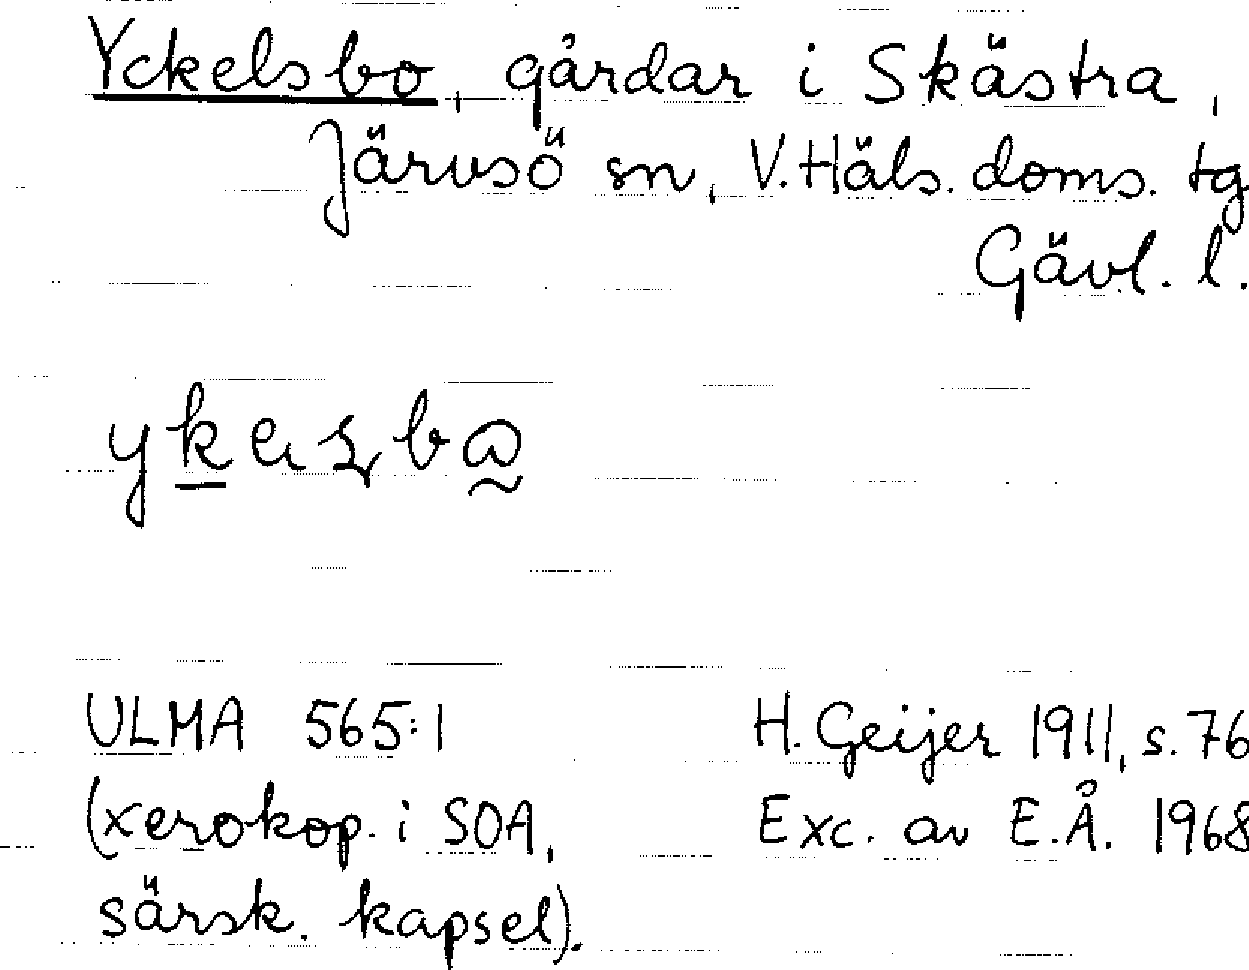 Yckelsbo, gårdar i Skästra,
Järvsö sn, V. Häls. doms. tg
Gävl. l.
ULMA 565:1
H. Geijer 1911, s. 76
(xerokop. i SOA,
Exc. av E.Å. 1968
särsk. kapsel).